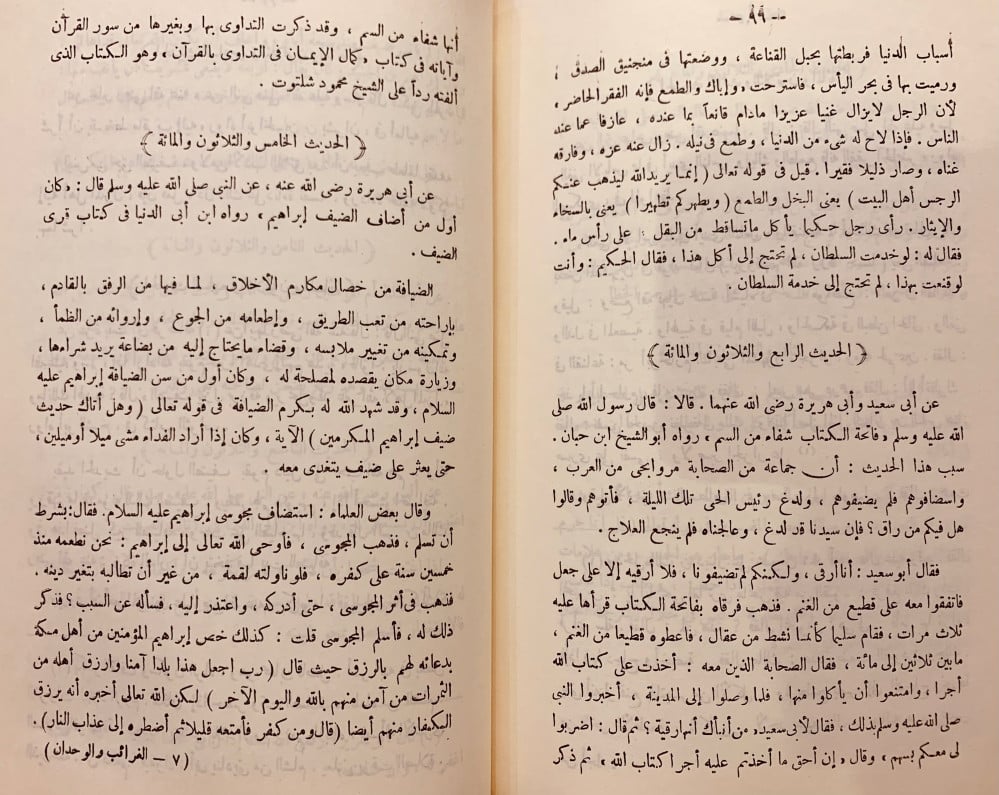 - ٩٩ -
أسباب الدنيا فربطتها بحبل القناعة ، ووضعتها فى منجنيق الصدق ،
ورميت بها فى بحر اليأس ، فاسترحت « وإياك والطمع فإنه الفقر الحاضر ،
لأن الرجل لايزال غنيا عزيزا مادام قانعاً بما عنده ، عازفا عما عند
الناس . فإذا لاح له شىء من الدنيا ، وطمع فى نيله . زال عنه عزه ، وفارقه
غناه ، وصار ذليلا فقيرا . قيل فى قوله تعالى ( إنما يريد الله ليذهب عنكم
الرجس أهل البيت ) يعنى البخل والطمع ( ويطهركم تطهيرا ) يعنى بالسخاء
والإيثار . رأى رجل حكيما يأكل ماتساقط من البقل على رأس ماء .
فقال له : لو خدمت السلطان ، لم تحتج إلى أكل هذا ، فقال الحكيم : وأنت
لو قنعت بهذا ، لم تحتج إلى خدمة السلطان .
﴿ الحديث الرابع والثلاثون والمائة ﴾
عن أبى سعيد وأبى هريرة رضى الله عنهما . قالا : قال رسول الله صلى
الله عليه وسلم « فاتحة الكتاب شفاء من السم » رواه أبو الشيخ ابن حيان .
سبب هذا الحديث : أن جماعة من الصحابة مروابحى من العرب ،
واستضافوهم فلم يضيفوهم ، ولدغ رئيس الحى تلك الليلة ، فأتوهم وقالوا
هل فيكم من راق ؟ فإن سيدنا قد لدغ ، وعالجناه فلم ينجع العلاج .
فقال أبو سعيد : أنا أرقى ، ولكنكم لم تضيفونا ، فلا أرقيه إلا على جعل
فاتفقوا معه على قطيع من الغنم . فذهب فرقاه بفاتحة الكتاب قرأها عليه
ثلاث مرات ، فقام سليما كأنما نشط من عقال ، فاعطوه قطيعا من الغنم ،
مابين ثلاثين إلى مائة ، فقال الصحابة الذين معه : أخذت على كتاب الله
أجرا ، وامتنعوا أن يأكلوا منها ، فلما وصلوا إلى المدينة ، أخبروا النبى
صلى الله عليه وسلم بذلك ، فقال لأبى سعيد « من أنبأك أنها رقية ؟ ثم قال : اضربوا
لى معكم بسهم ، وقال « إن أحق ما أخذتم عليه أجرا كتاب الله ، ثم ذكر
أنها شفاء من السم ، وقد ذكرت التداوى بها وبغيرها من سور القرآن
وآياته فى كتاب « كمال الإيمان فى التداوى بالقرآن » وهو الكتاب الذى
ألفته رداً على الشيخ محمود شلتوت .
﴿ الحديث الخامس والثلاثون والمائة ﴾
عن أبى هريرة رضى الله عنه ، عن النبى صلى الله عليه وسلم قال : « كان
أول من أضاف الضيف إبراهيم » رواه ابن أبى الدنيا فى كتاب قرى
الضيف .
الضيافة من خصال مكارم الأخلاق ، لما فيها من الرفق بالقادم ،
بإراحته من تعب الطريق ، وإطعامه من الجوع ، وإروائه من الظمأ ،
وتمكينه من تغيير ملابسه ، وقضاء مايحتاج إليه من بضاعة يريد شراءها ،
وزيارة مكان يقصده لمصلحة له ، وكان أول من سن الضيافة إبراهيم عليه
السلام ، وقد شهد الله له بكرم الضيافة فى قوله تعالى ( وهل أتاك حديث
ضيف إبراهيم المكرمين ) الآية ، وكان إذا أراد الغداء مشى ميلا أوميلين ،
حتى يعثر على ضيف يتغدى معه .
وقال بعض العلماء : استضاف مجوسى إبراهيم عليه السلام . فقال : بشرط
أن تسلم ، فذهب المجوسى ، فأوحى الله تعالى إلى إبراهيم : نحن نطعمه منذ
خمسين سنة على كفره ، فلو ناولته لقمة ، من غير أن تطالبه بتغير دينه .
فذهب فى أثر المجوسى ، حتى أدركه ، واعتذر إليه ، فسأله عن السبب ؟ فذكر
ذلك له ، فأسلم المجوسى قلت : كذلك خص إبراهيم المؤمنين من أهل مكة
بدعائه لهم بالرزق حيث قال ( رب اجعل هذا بلدا آمنا وارزق أهله من
الثمرات من آمن منهم بالله واليوم الآخر ) لكن الله تعالى أخبره أنه يرزق
الكفار منهم أيضا ( قال ومن كفر فأمتعه قليلا ثم أضطره إلى عذاب النار ) .
( ٧ - الغرائب والوحدان )